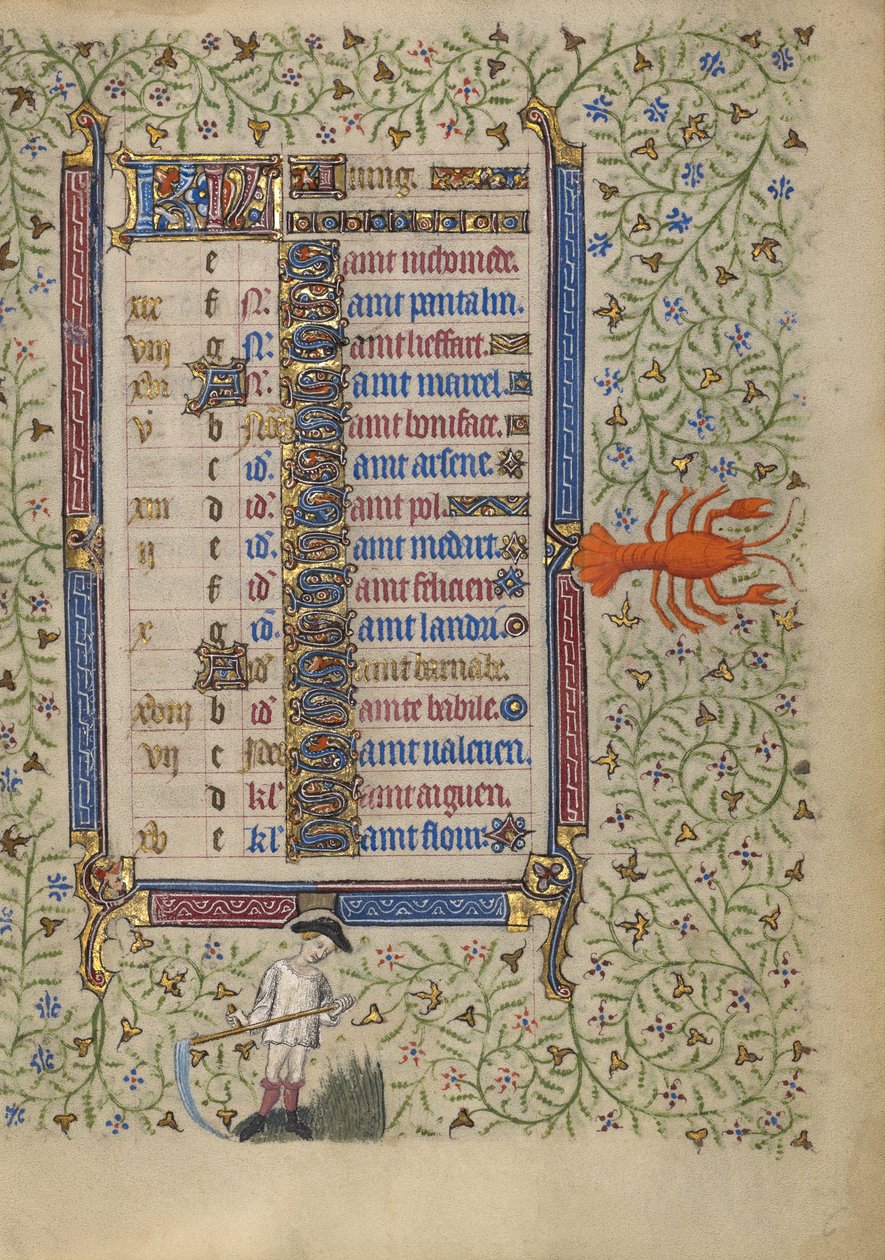 KL Iung.
e Saint nichomede.
xix f N. Saint pantalin.
viii g N. Saint lieffart.
xvi A N. Saint marcel.
v b Saint boniface.
c id. Saint arsene.
xiii d id. Saint pol.
ii e id. Saint medart.
f id Saint felicien
x g id. Saint landri.
A id Saint barnabe.
xviii b id Sainte babile.
vii c Saint ualerien.
d kl Saint aiguen.
xv e kl Saint flour.